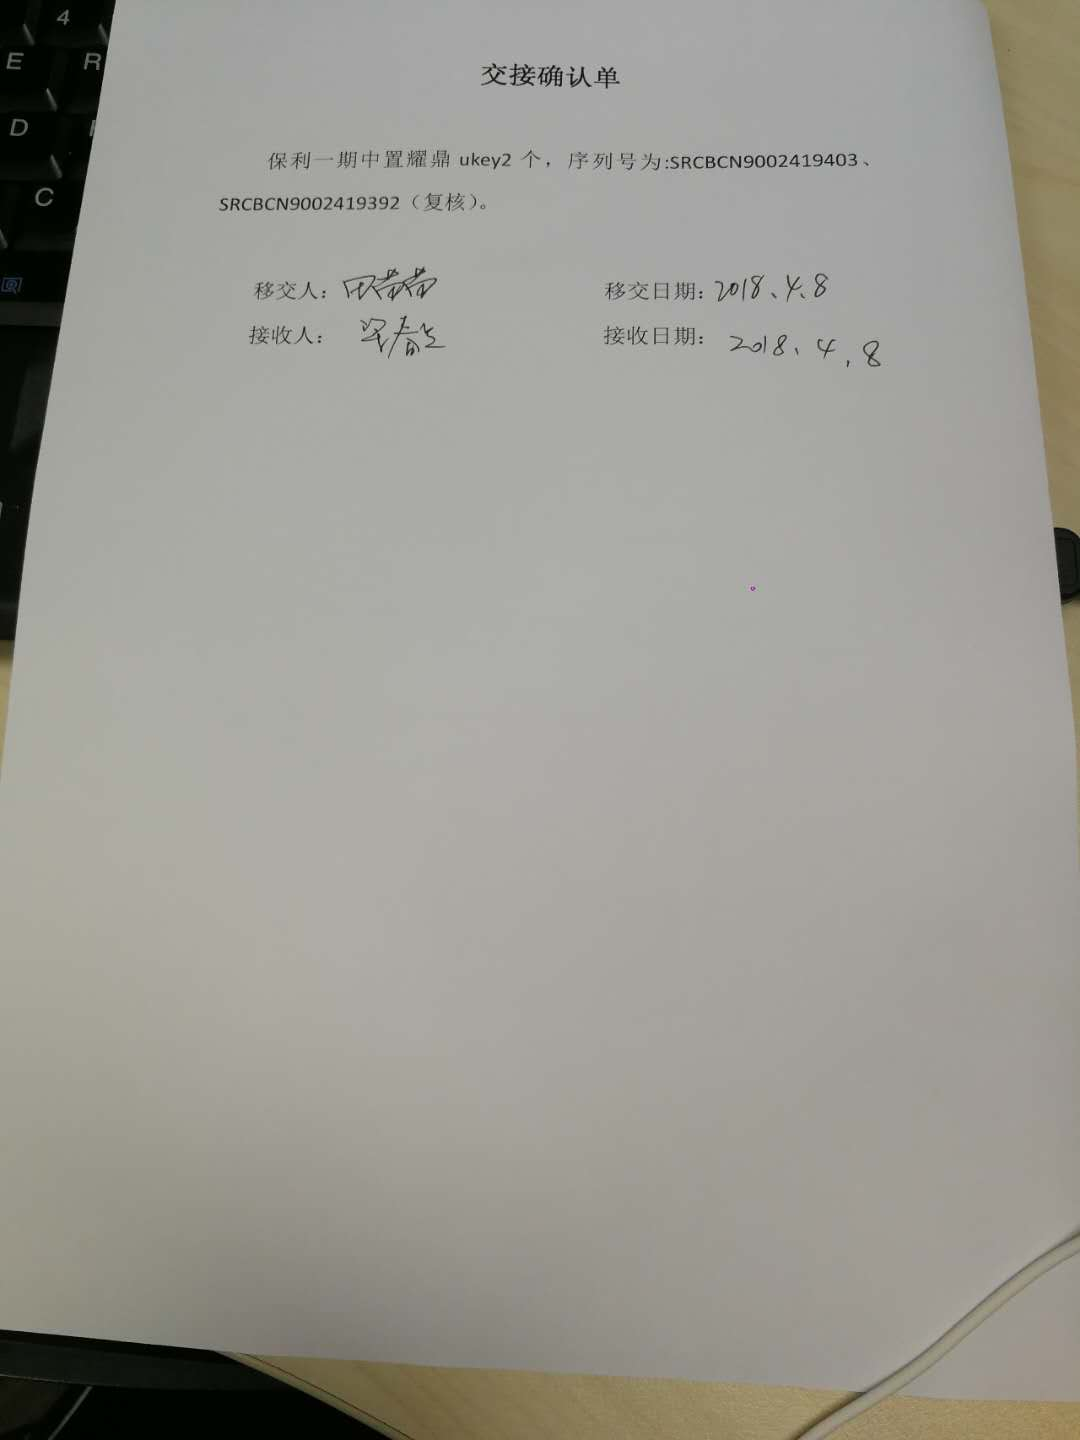 4
E R
D
C
交接确认单
保利一期中置耀鼎 ukey2 个，序列号为:SRCBCN9002419403、
SRCBCN9002419392（复核）。
移交人： 移交日期：2018、4、8
接收人： 接收日期：2018、4、8